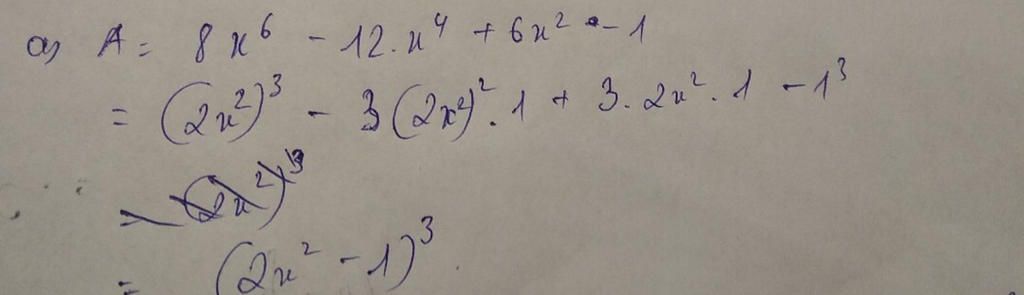 a) A = 8x⁶ - 12.x⁴ + 6x² - 1
= (2x²)³ - 3(2x²)².1 + 3.2x².1 - 1³
= (2x²)³
= (2x² - 1)³